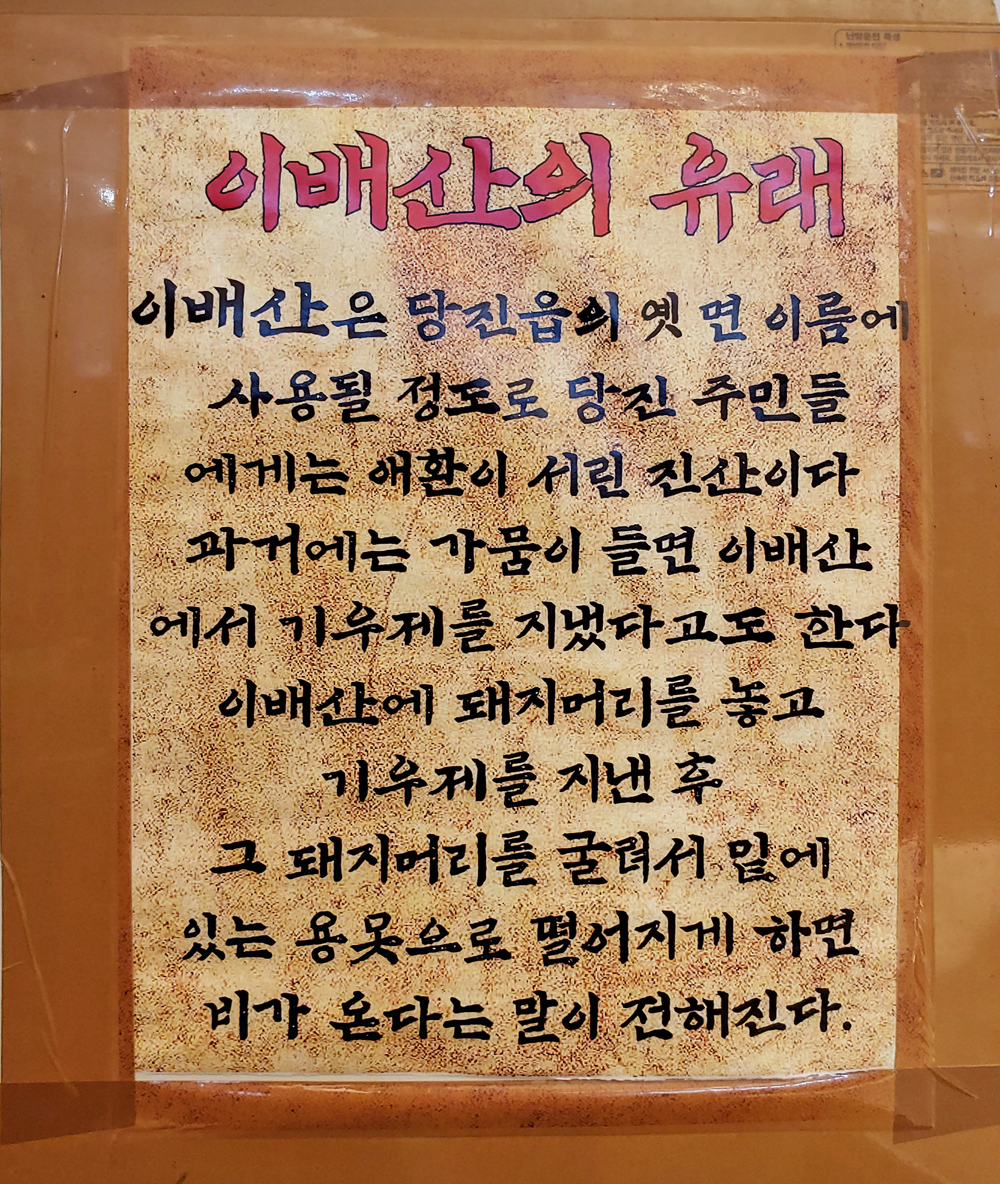 이배산의 유래
이배산은 당진읍의 옛 면 이름에
사용될 정도로 당진 주민들
에게는 애환이 서린 진산이다
과거에는 가뭄이 들면 이배산
에서 기우제를 지냈다고도 한다
이배산에 돼지머리를 놓고
기우제를 지낸 후
그 돼지머리를 굴려서 밑에
있는 용못으로 떨어지게 하면
비가 온다는 말이 전해진다.